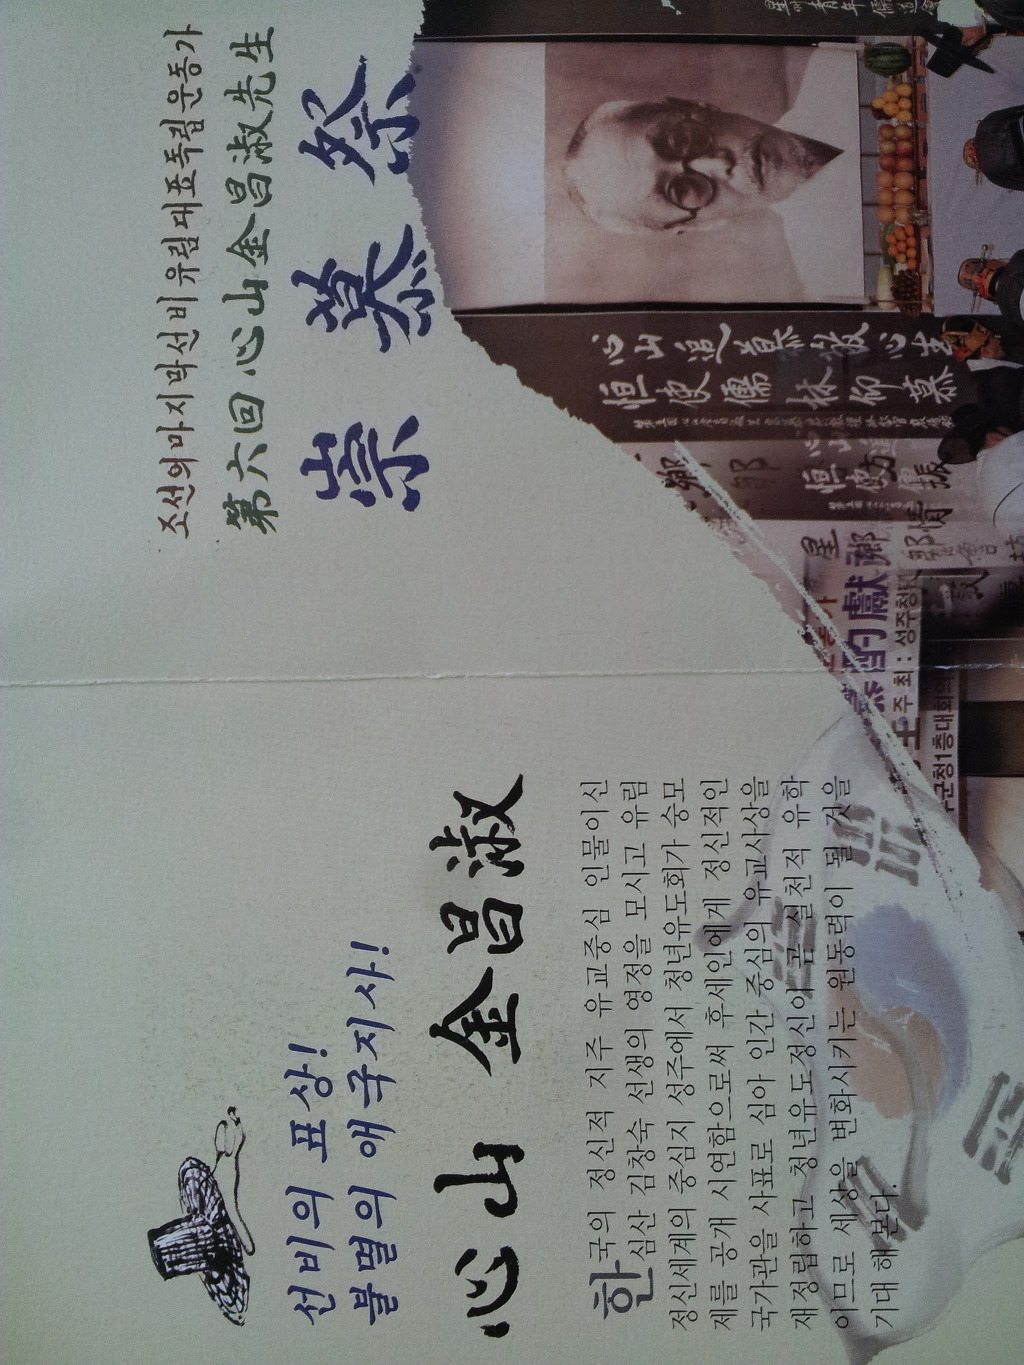 선비의 표상!
불멸의 애국지사!
心山 金昌淑
한국의 정신적 지주 유교중심 인물이신
심산 김창숙 선생의 영정을 모시고 유림
정신세계의 중심지 성주에서 청년유도회가 숭모
제를 공개 시연함으로써 후세인에게 정신적인
국가관을 사표로 심아 인간 중심의 유교사상을
재정립하고 청년유도정신이 곧 실천적 유학
이므로 세상을 변화시키는 원동력이 될 것을
기대 해 본다.
조선의 마지막 선비 유림대표 독립운동가
第六回 心山 金昌淑先生
崇慕祭
心山追慕敬心生
恒使儒林仰慕
酌獻
주 최 : 성주청년
군청1층대회의